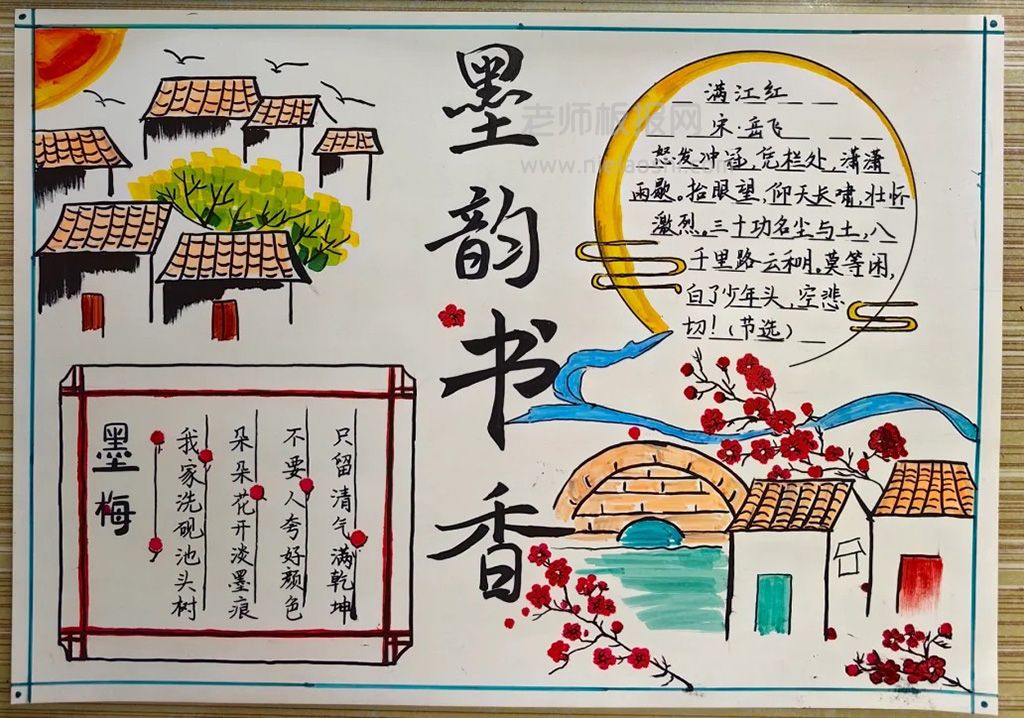 墨韵书香
满江红
宋·岳飞
怒发冲冠，凭栏处，潇潇
雨歇。抬眼望，仰天长啸，壮怀
激烈。三十功名尘与土，八
千里路云和月。莫等闲，
白了少年头，空悲
切！（节选）
墨梅
我家洗砚池头树
朵朵花开淡墨痕
不要人夸好颜色
只留清气满乾坤
老师板报网